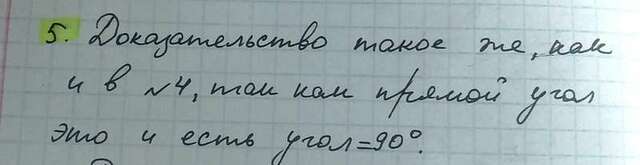 5. Доказательство такое же, как
и в №4, так как прямой угол
это и есть угол=90°.